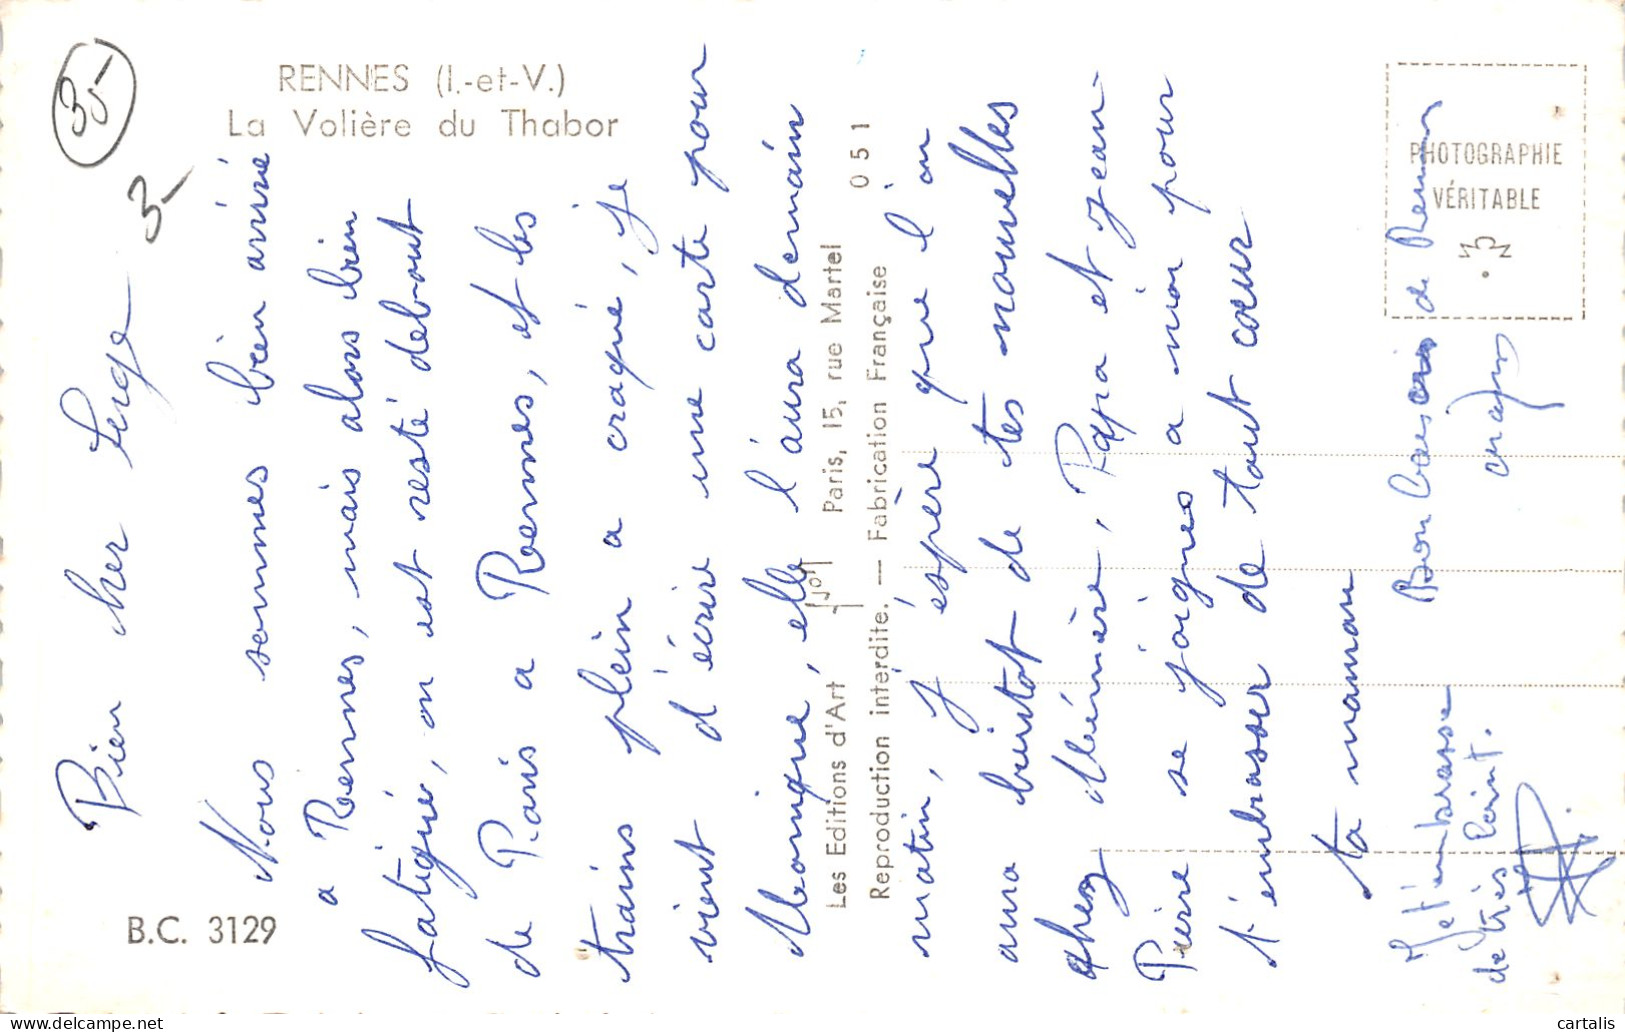 RENNES (I.-et-V.)
La Volière du Thabor
3,-
3-
B.C. 3129
Les Editions d'Art JOA Paris, 15, rue Martel 051
Reproduction interdite. — Fabrication Française
PHOTOGRAPHIE
VÉRITABLE
Bien cher Serge
Nous sommes bien arrivé
a Rennes, mais alors bien
fatigué, on est resté debout
de Paris a Rennes, et les
trains plein a craqué, je
vient d'écrire une carte pour
Monique, elle l'aura demain
matin, j'éspère que l'on
aura bientot de tes nouvelles
chez Mémère, Papa et Jean-
Pierre se joignes a moi pour
t'embrasser de tout cœur
ta maman
Bon Baisers de Rennes
Je t'embrasse
de très loint.
cartalis